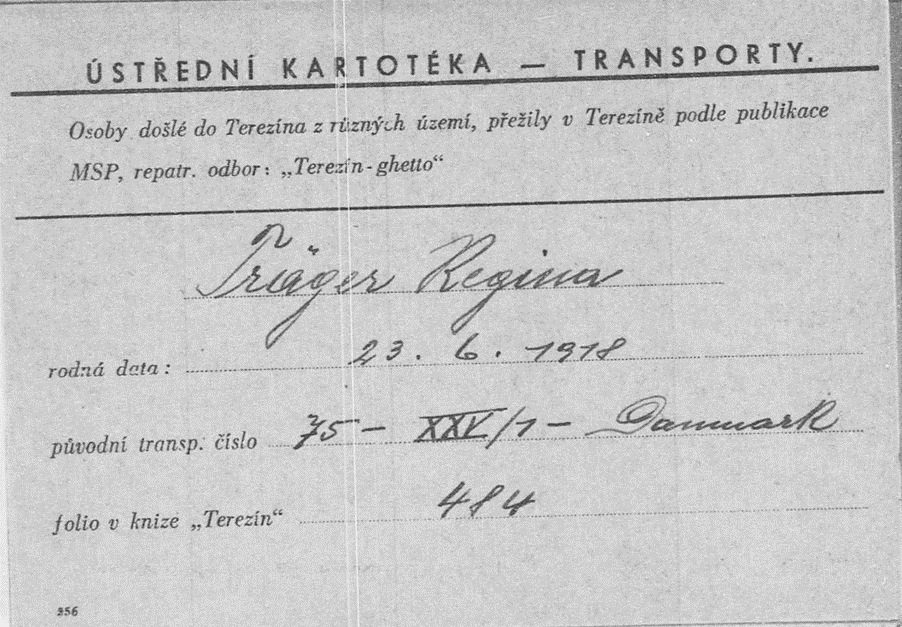 ÚSTŘEDNÍ KARTOTÉKA — TRANSPORTY.
Osoby došlé do Terezína z různých území, přežily v Terezíně podle publikace
MSP, repatr. odbor: „Terezín-ghetto“
Träger Regina
rodná data: 23. 6. 1918
původní transp. číslo 75 – XXV/1 – Danmark
folio v knize „Terezín“ 484
256